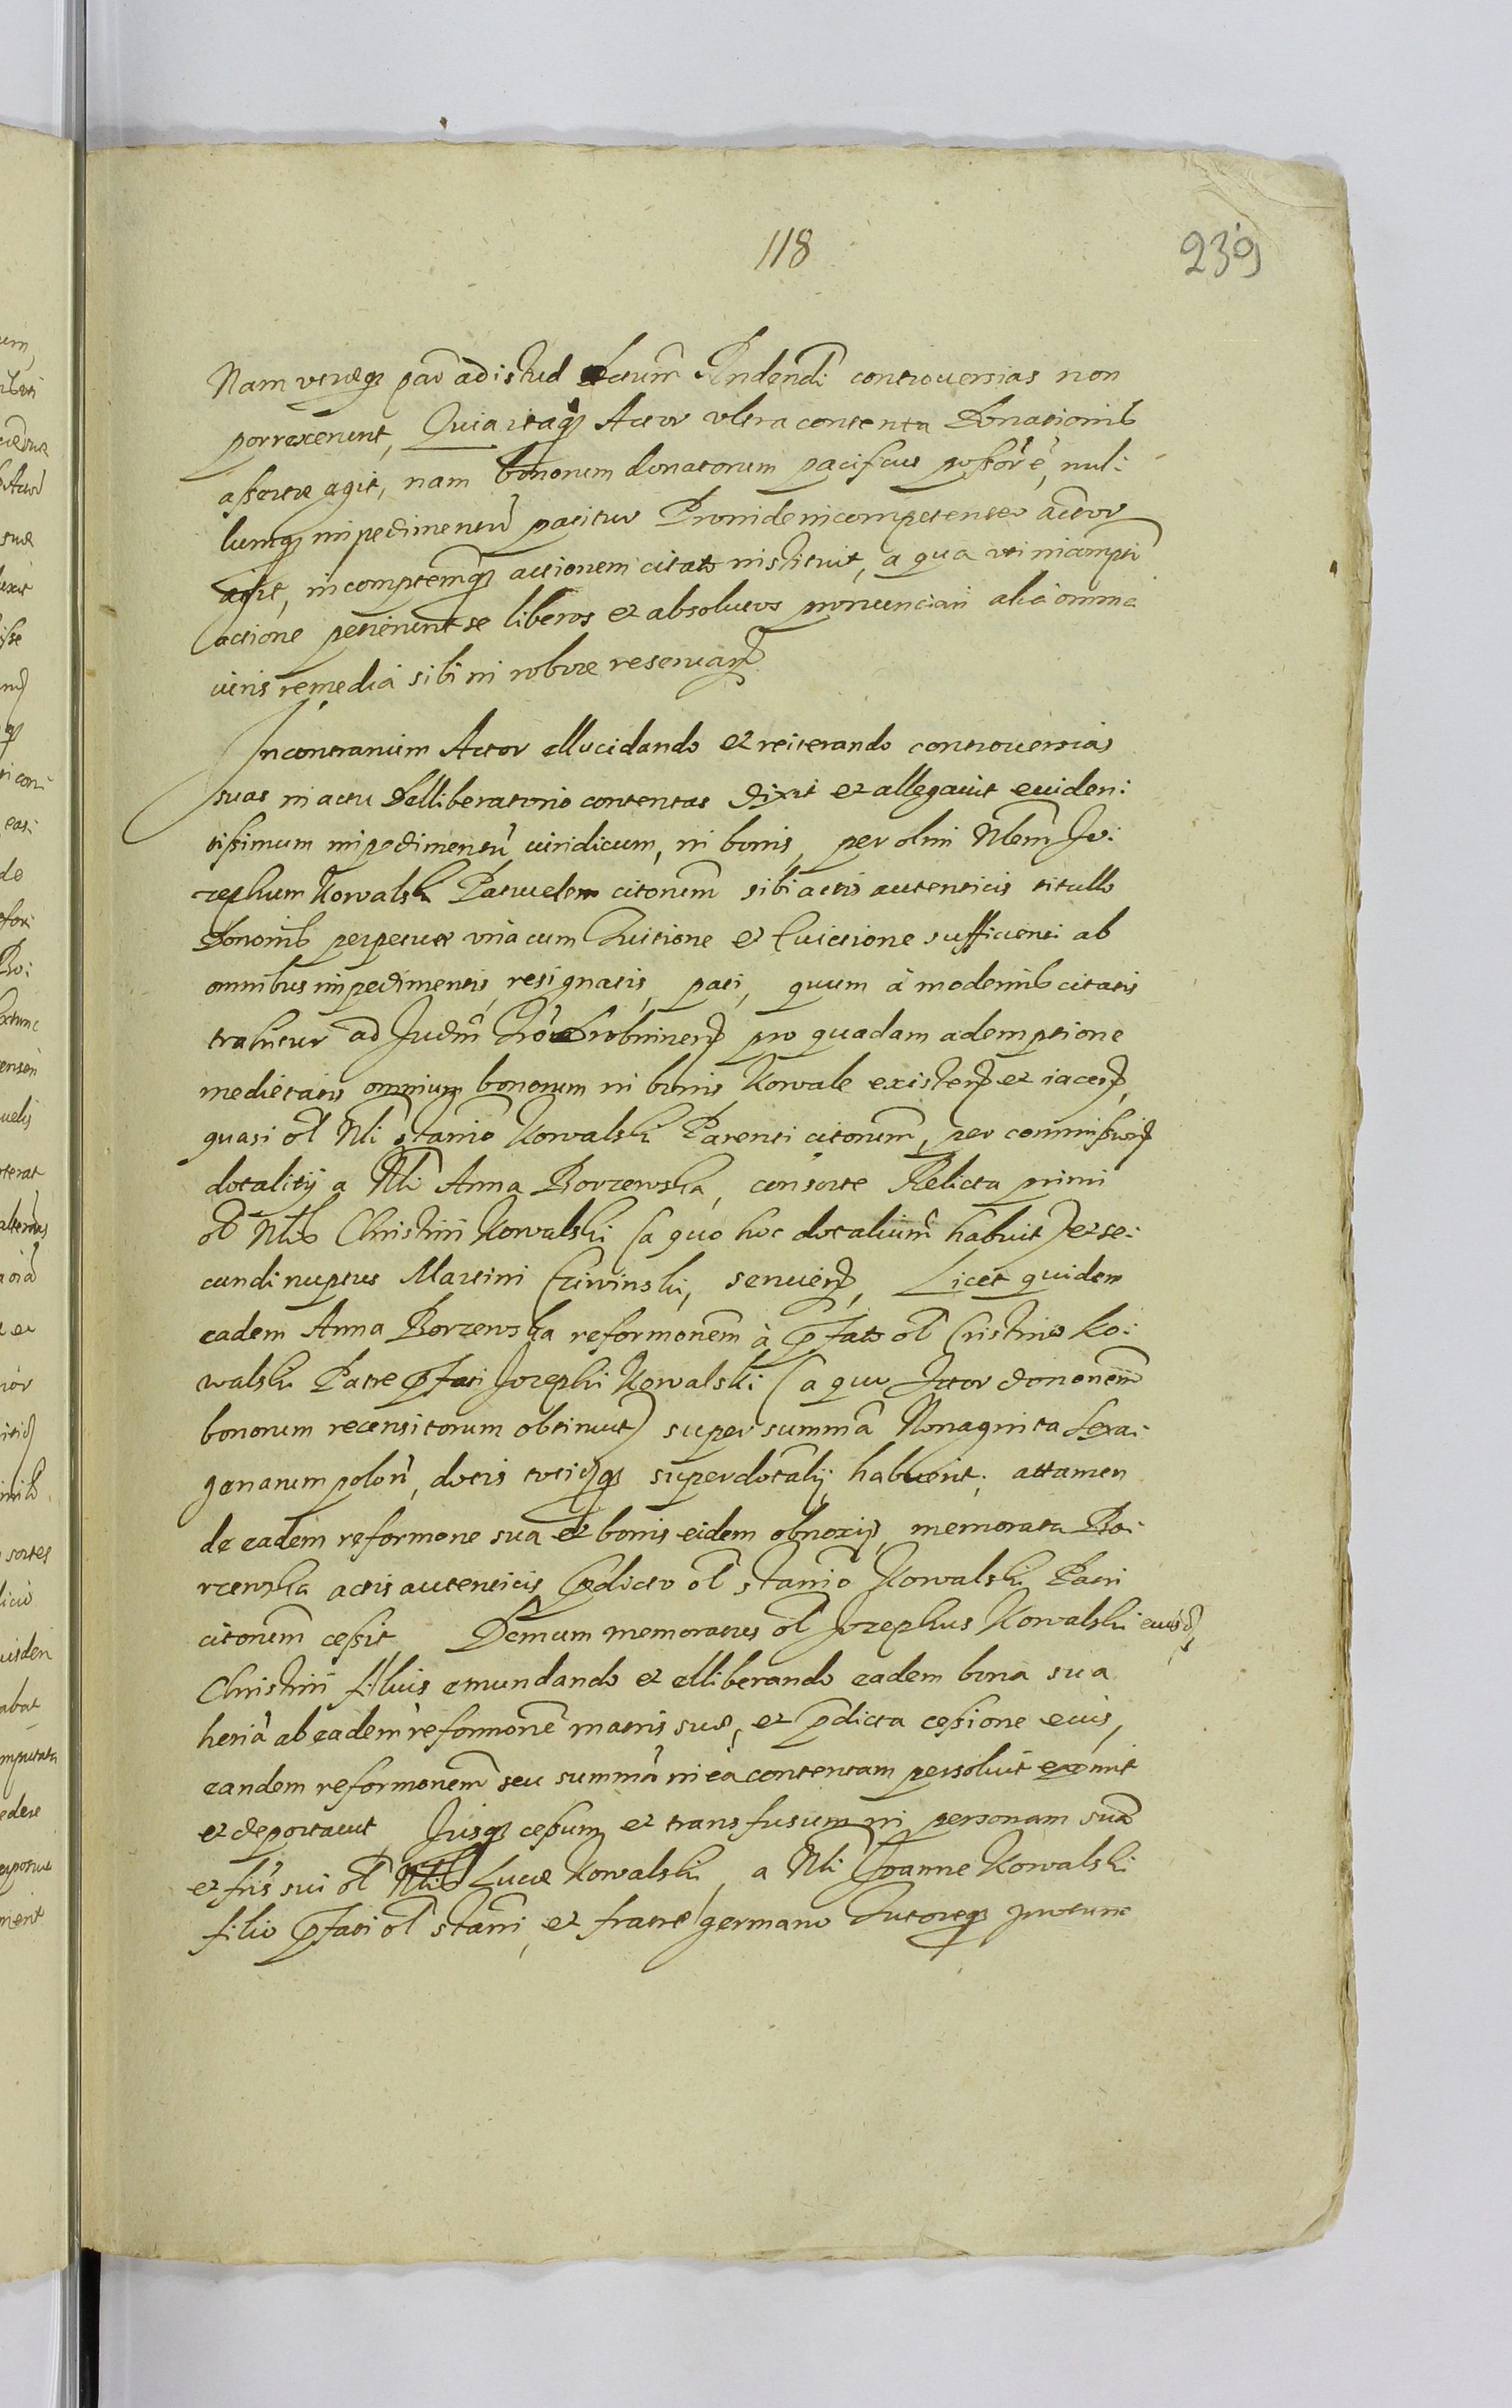 118
239
Nam utraq3 pars ad istud Actum Ardendi controuersias non
porrexerunt, Quia itaq3 Actor vltra contenta Donationis
assertae agit, nam bonorum donatorum pacificus possor e, nul:
lumq3 impedimentu patitur Proinde incompetenter Actor
agit, incomptemq3 actionem citatis instituit, a qua uti incompti
actione petierunt se liberos et absolutos pronunciari alia omnia
iuris remedia sibi in robore reseruan
Incontrarium Actor ellucidando et reiterando controuersias
suas in actu Delliberatorio contentas dixit et allegauit euiden:
tissimum impedimentu iuridicum, in bonis, per olim Nlem Jo:
zephum Kowalski Patruelem citorum sibi actis autenticis titullo
Donōnis perpetuae una cum Tuitione et Euictione sufficienti ab
omnibus impedimentis, resignatis, pati, quum à modernis citatis
trahitur ad Judm pro quadam ademptione
medietatis omnium bonorum in bonis Kowale existen et iacen,
quasi ol Nli Stanio Kowalski Parenti citorum, per commission
dotalitij a Nli Anna Borzewska, consorte Relicta primi
ol Nlis Christini Kowalski (a quo hoc dotalium habuit) et se:
cundi nuptus Martini Cziwinski, seruien, Licet quidem
eadem Anna Borzewska reformonem à pfato ol Cristino Ko:
walski Patre pfati Jozephi Kowalski (a quo Actor dononem
bonorum recensitorum obtinuit) super summa Nonaginta Sexa:
genarum polon, dotis totiq3 superdotalij habuerit, attamen
de eadem reformone sua et bonis eidem obnoxijs, memorata Bo:
rzewska actis autenticis pdicto ol Stanio Kowalski Patri
citorum cessit Demum memoratus ol Jozephus Kowalski eiusd,
Christini filius emundando et elliberando eadem bona sua
heria ab eadem reformone matris suae, et pdicta cessione eius,
eandem reformonem seu summa in ea contentam persoluit exemit
et deportauit Jusq3 cessum et transfusum in personam sua
et fris sui ol Nlis Lucae Kowalski, a Nli Joanne Kowalski
filio pfati ol Stani, et fratre germano Tutoreq3 protunc